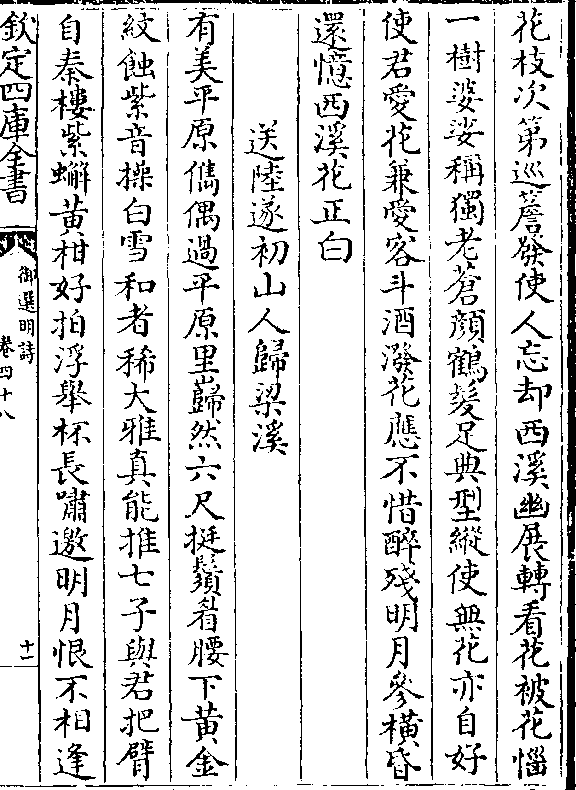 花枝次第巡簷發使人忘却西溪幽展轉看花被花惱
一樹婆娑稱獨老蒼顔鶴髮足典型縱使無花亦自好
使君愛花兼愛客斗酒潑花應不惜醉殘明月參橫昏
還憶西溪花正白
送陸遂初山人歸梁溪
有美平原儁偶過平原里巋然六尺挺鬚眉腰下黄金
紋蝕紫音操白雪和者稀大雅真能推七子與君把臂
自秦樓紫蠏黄柑好拍浮舉杯長嘯邀明月恨不相逢
欽定四庫全書
御選明詩
卷四十八
十一